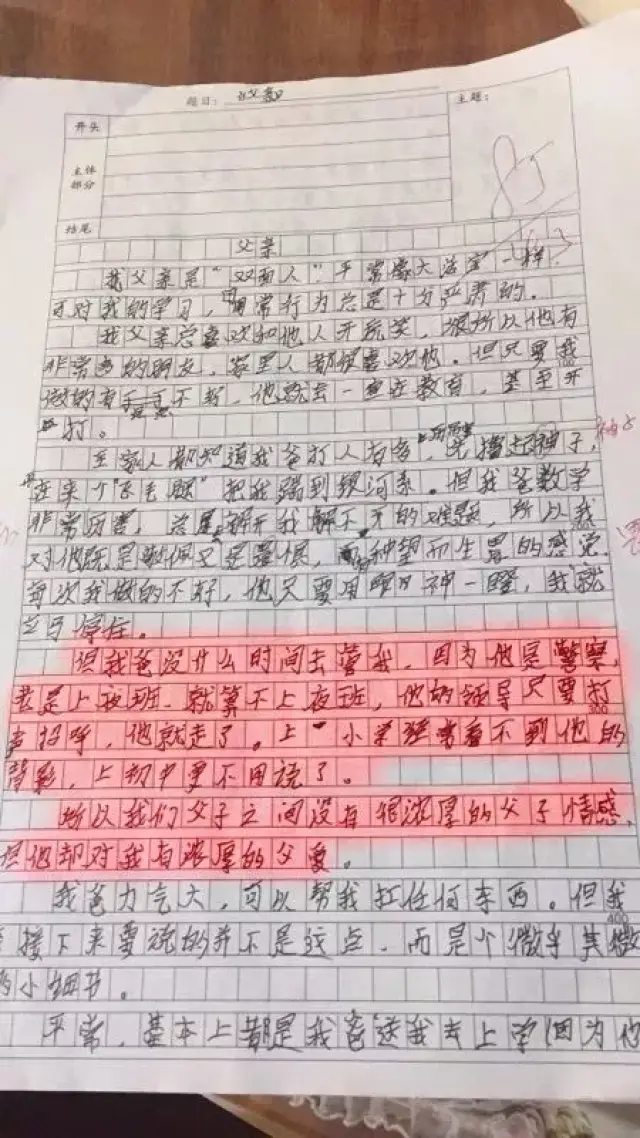 题目：父亲
主题：
开头
主体
部分
结尾
85
父亲
我父亲是“双面人”，平常像大活宝一样，
可对我的学习，日常行为总是十分严肃的。
我父亲总喜欢和他人开玩笑，所以他有
非常多的朋友，家里人都很喜欢他。但只要我
做的有不好，他就会一直在教育，甚至开
打。
全家人都知道我爸打人有多厉害，先撸起袖子，
在来个“ 毛腿”把我踹到银河系。但我爸数学
非常厉害，总是解开我解不开的难题，所以我
对他既是敬佩又是畏惧，有种望而生畏的感觉
每次我做的不好，他只要用眼神一瞪，我就
立马停住。
但我爸没什么时间去管我，因为他是警察，
老是上夜班，就算不上夜班，他的领导只要打
声招呼，他就走了。上小学经常看不到他的
背影，上初中更不用说了。
所以我们父子之间没有很浓厚的父子情感，
但他却对我有浓厚的父爱。
我爸力气大，可以帮我扛任何东西。但我
接下来要说的并不是这点，而是个微乎其微
的小细节。
400
平常，基本上都是我爸送我去上学（因为他
袖子